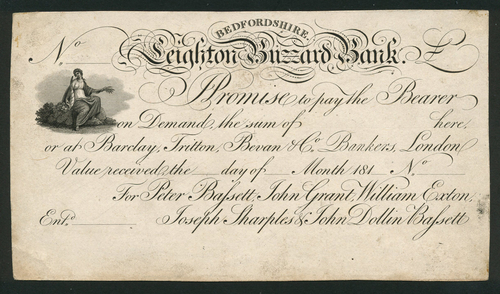 BEDFORDSHIRE.
No Leighton Buzzard Bank. £
Promise to pay the Bearer
on Demand, the sum of here,
or at Barclay, Tritton, Bevan & Co. Bankers, London
Value received the day of Month 181 No
For Peter Bassett, John Grant, William Exton,
Entd. Joseph Sharples & John Dollin Bassett